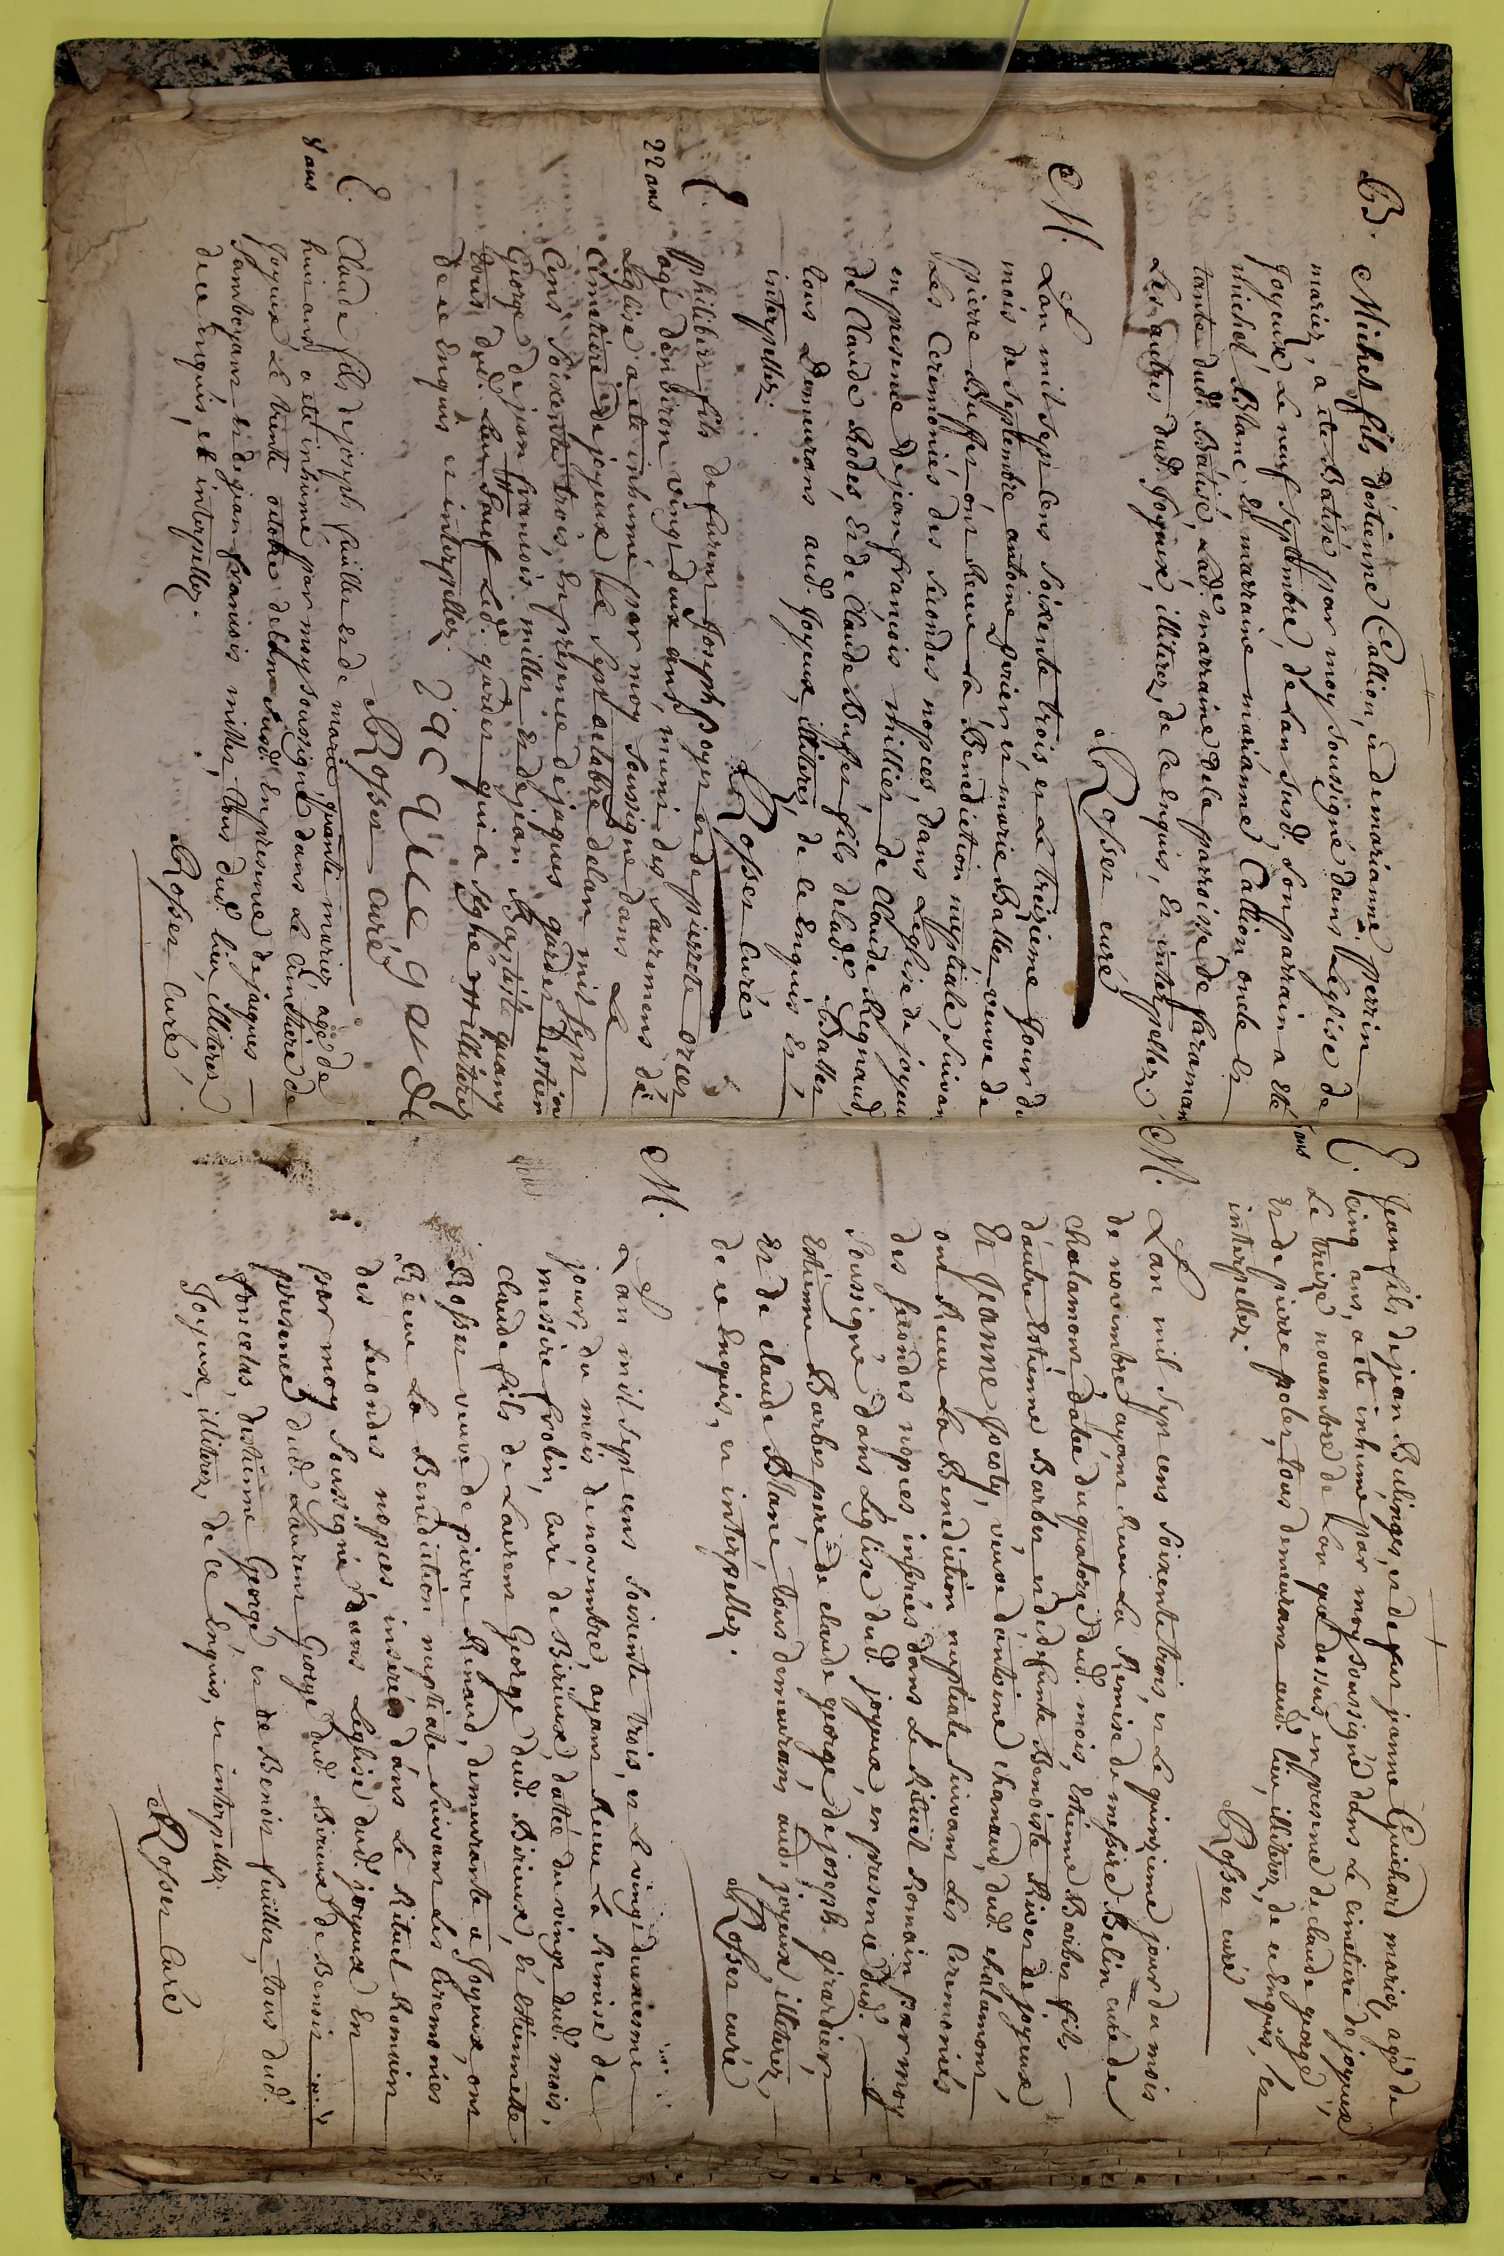 B. Michel fils d'estienne Callion, et de marianne perrin
mariez, a eté Batisé par moy soussigné dans L'eglise de
Joyeux Le neuf septembre, de lan susd. son parrain a eté
michel Blanc et marraine marianne Callion oncle et
tante dud. Batisé, Lad. marraine de la parroisse de faraman
Les autres dud. Joyeux, illiterez, de ce enquis, et interpellez.
Rosser curé
M. Lan mil sept cens soixente trois, et Le treizieme Jour du
mois de septembre antoine perier et marie Ballet veuve de
pierre Buffet ont Receu la Benediction nuptiale, suivan
Les Ceremonies des secondes nopces, dans L'eglise de joyeu
en presence de jean francois millier de Claude Regnaud,
de Claude Rodes, et de Claude Buffet fils de lade Ballet
tous Demeurans aud. Joyeux, illiterés, de ce enquis et
interpellez.
Rosser Curé
E.
22 ans
philibert fils de furent Joseph Boyer et de pierrete orier
agé d'environ vingt deux ans, muni des sacremens de
L'eglise a eté inhumé par moy soussigné dans Le
Cimetiere de joyeux Le sept octobre de lan mil sept
Cens soixente trois, en presence de jaques gardet d'estien
George de jean francois millet et de jean Baptiste guany
tous dud. Lieu sauf Led. gardet qui a signé illiterez
de ce enquis et interpellez.
jacque garde
Rosser Curé
E.
8 ans
Claude fils de joseph fuillet et de marie quanti mariez agé de
huit ans a eté inhumé par moy soussigné dans Le Cimetiere de
Joyeux Le trente octobre de lan susd. En presence de jaques
Jambeyant et de jean francois millet, tous dud. lieu, illiterez
de ce Enquis, et interpellez.
Rosser Curé
E.
5 ans
Jean fils de jean Bulinges, et de fut jeanne Guichard mariez, agé de
cinq ans, a eté inhumé par moy soussigné dans Le cimetiere de joyeux
Le treize novembre de Lan que dessus en presence de claude george,
et de pierre polet, tous demeurans aud. lieu, illiterez, de ce enquis, et
interpellez.
Rosser curé
M. Lan mil sept cens soixente trois, et Le quinzieme jour du mois
de novembre ayant Receu La Remise de messire Belin curé de
chalamont datée du quatorze dud. mois, Estienne Barbet fils
d'autre Estienne Barbet et de defunte Benoiste River de joyeux
Et Jeanne Jocoty, veuve d'antoine chanaud, dud. chalamont,
ont Receu La Benediction nuptiale suivant Les Ceremonies
des secondes nopces inserées dans Le Rituel Romain par moy
soussigné dans L'eglise dud. joyeux, en presence dud.
Estienne Barbet pere de claude george de joseph girardier,
et de claude Blanc, tous demeurans aud. joyeux, illiterez,
de ce enquis, et interpellez.
Rosser curé
M.
Lan mil sept cens soixente trois, et Le vingt deuxiesme
jour, du mois de novembre, ayant Receu La Remise de
messire frotin, Curé de Birieux, datée du vingt dud. mois,
claude fils de Laurent George dud. Birieux, Et Estiennette
Rosset veuve de pierre Rinaud, demeurante a Joyeux, ont
Receu La Benediction nuptiale suivant Les Ceremonies
des secondes nopces inserées dans Le Rituel Romain
par moy soussigné dans L'eglise dud. joyeux en
presence dud. Laurent George dud. Birieux de Benoit
foncelas d'estienne George, et de Benoit fuillet, tous dud.
Joyeux, illiterez, de ce Enquis, et interpellez.
Rosser Curé